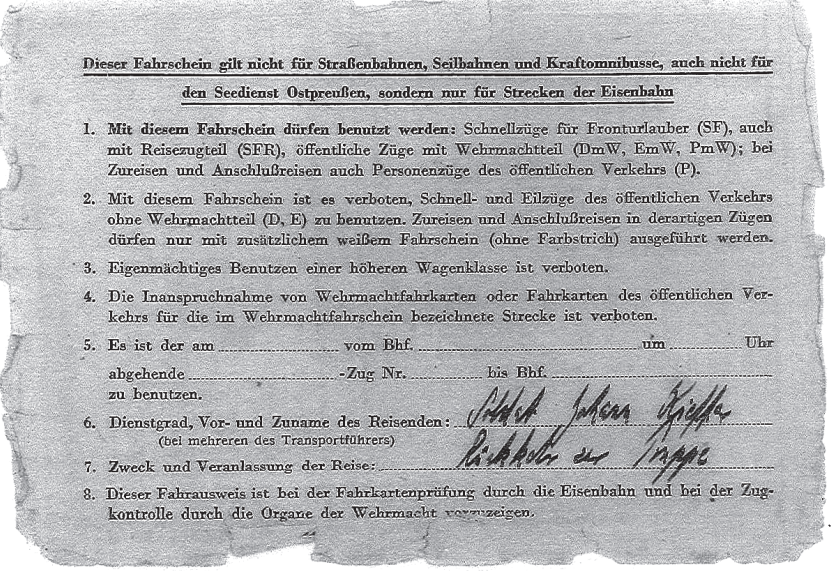 Dieser Fahrschein gilt nicht für Straßenbahnen, Seilbahnen und Kraftomnibusse, auch nicht für
den Seedienst Ostpreußen, sondern nur für Strecken der Eisenbahn
1. Mit diesem Fahrschein dürfen benutzt werden: Schnellzüge für Fronturlauber (SF), auch
mit Reisezugteil (SFR), öffentliche Züge mit Wehrmachtteil (DmW, EmW, PmW); bei
Zureisen und Anschlußreisen auch Personenzüge des öffentlichen Verkehrs (P).
2. Mit diesem Fahrschein ist es verboten, Schnell- und Eilzüge des öffentlichen Verkehrs
ohne Wehrmachtteil (D, E) zu benutzen. Zureisen und Anschlußreisen in derartigen Zügen
dürfen nur mit zusätzlichem weißem Fahrschein (ohne Farbstrich) ausgeführt werden.
3. Eigenmächtiges Benutzen einer höheren Wagenklasse ist verboten.
4. Die Inanspruchnahme von Wehrmachtfahrkarten oder Fahrkarten des öffentlichen Ver-
kehrs für die im Wehrmachtfahrschein bezeichnete Strecke ist verboten.
5. Es ist der am vom Bhf. um Uhr
abgehende -Zug Nr. bis Bhf.
zu benutzen.
6. Dienstgrad, Vor- und Zuname des Reisenden: Soldat Johann Kieffer
(bei mehreren des Transportführers)
7. Zweck und Veranlassung der Reise: Rückkehr zur Truppe
8. Dieser Fahrausweis ist bei der Fahrkartenprüfung durch die Eisenbahn und bei der Zug-
kontrolle durch die Organe der Wehrmacht vorzuzeigen.